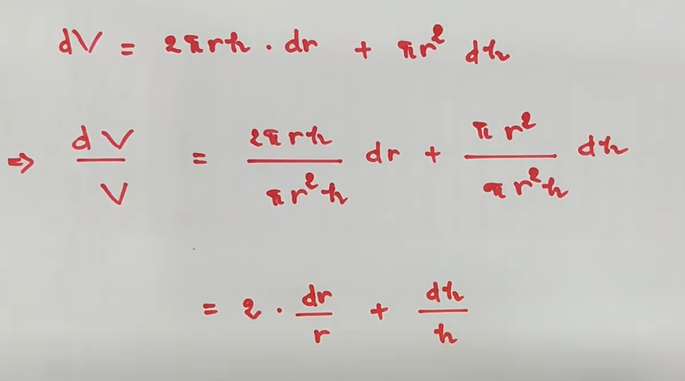 dV = 2πrh · dr + πr² dh
⇒ dV/V = 2πrh/πr²h dr + πr²/πr²h dh
= 2 · dr/r + dh/h